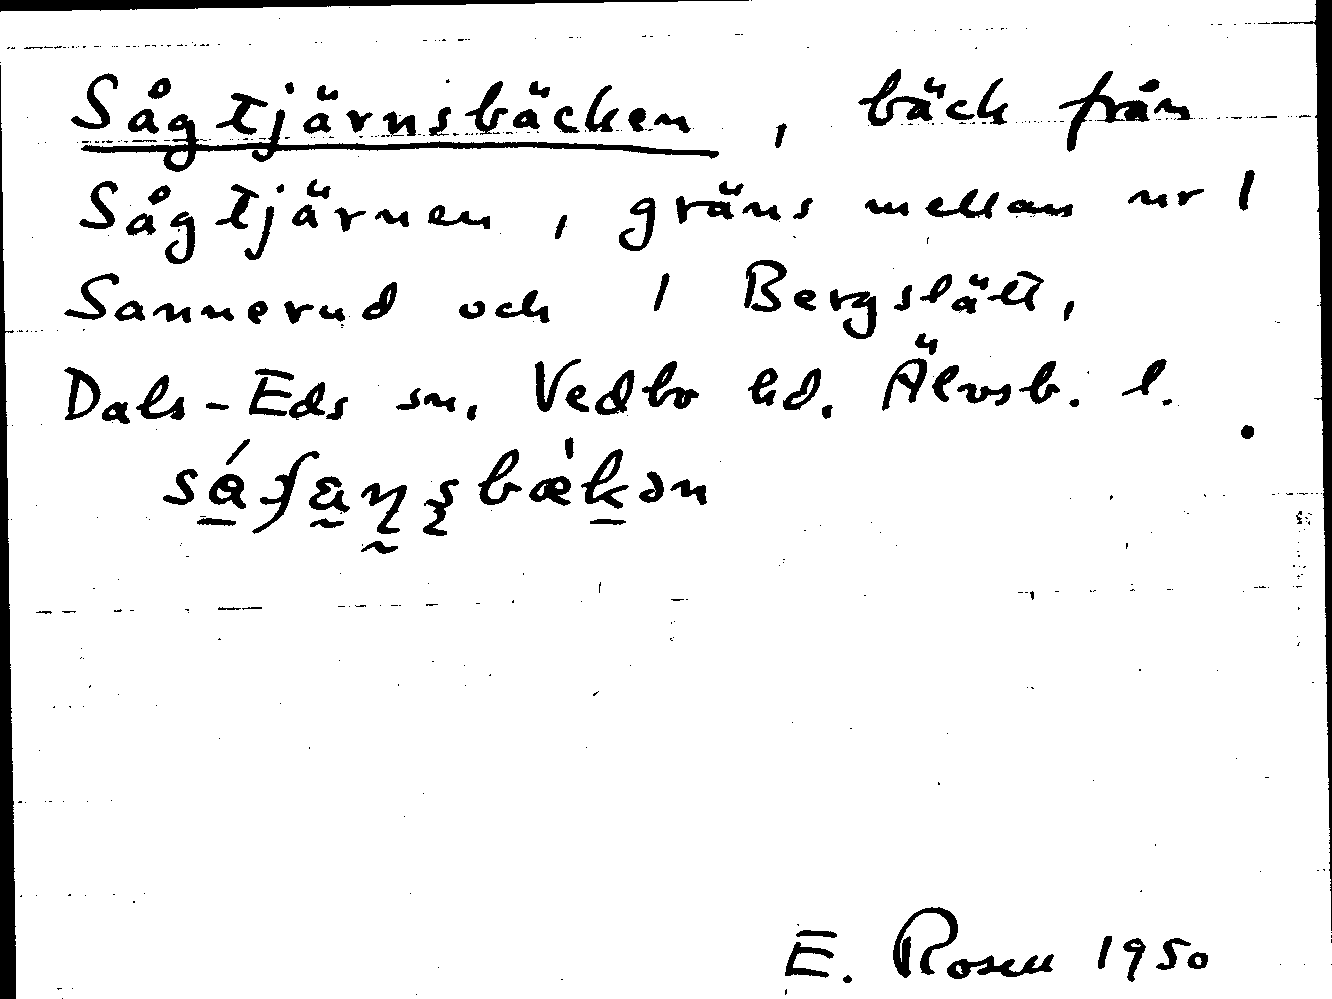 Sågtjärnsbäcken, bäck från
Sågtjärnen, gräns mellan nr 1
Sannerud och 1 Bergslätt,
Dals-Eds sn. Vedbo hd. Älvsb. l.
E. Rosell 1950